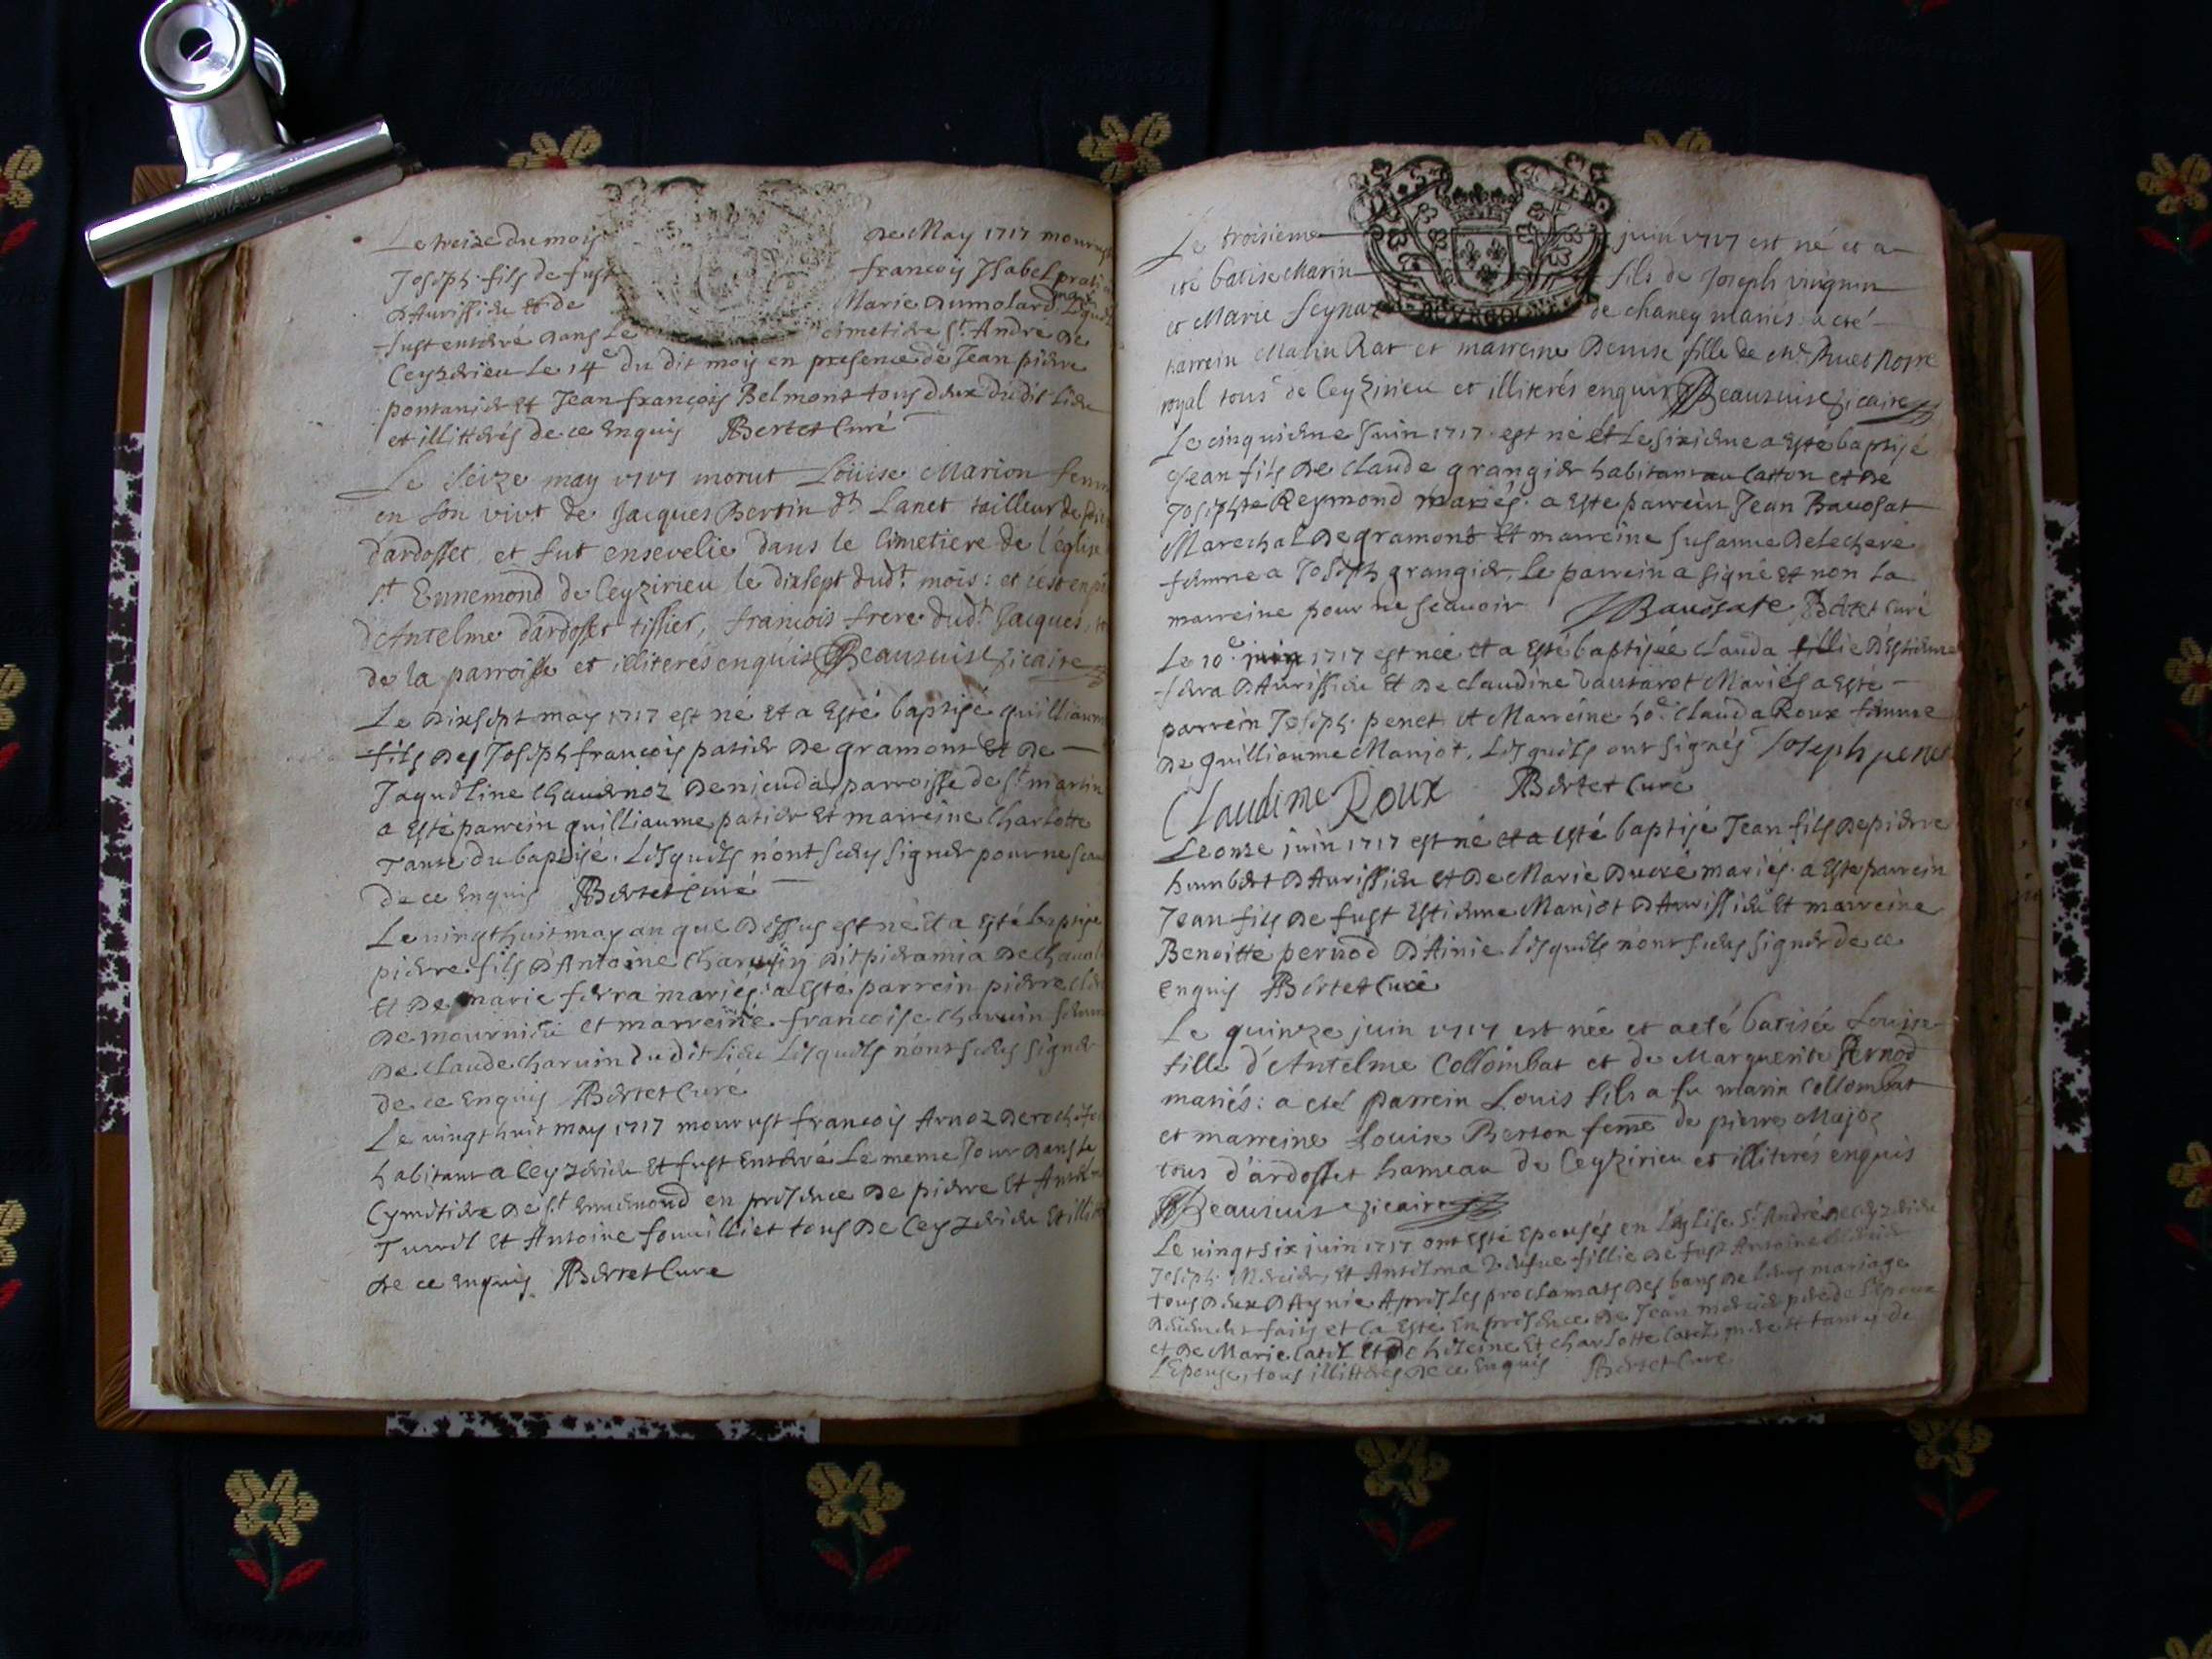 Le treize du mois de May 1717 mourust
Joseph fils de fust françois Isabel
d'Aurissieu et de Marie Dumolard
fust enterré dans le cimetiere St André de
Ceyzerieu le 14e du dit mois en presence de Jean pierre
pontanier et Jean françois Belmont tous deux du dit lieu
et illitterés de ce enquis Bertet Curé
Le seize may 1717 morut Louise Marion
en son vivt de Jacques Bertin dt Lanet tailleur de
d'ardosset, et fut ensevelie dans le cimetiere de l'église
st Ennemond de Ceyzirieu le dixsept dudt mois: et
d'Antelme d'ardosset tissier, francois frere dudt Jacques,
de la parroisse et illiterés enquis Beauvuise vicaire
Le dixsept may 1717 est né et a esté baptisé guilliaume
fils des Joseph françois patier de gramont et de
Jaqueline Chavernoz parroisse de st martin
a esté parrein guilliaume patier et marreine Charlotte
Tante du baptisé. Lesquels n'ont sceus signer pour ne
de ce enquis Bertet Curé
Le vingt huit may an que dessus est né et a esté baptisé
pierre fils d'Antoine Charvin dit pieramia de
et de marie ferra mariés. a esté parrein pierre
de mournieu et marreine françoise Charvin
de Claude Charvin du dit lieu Lesquels n'ont sceus signer
de ce enquis Bertet Curé
Le vingt huit may 1717 mourust françois Arnoz de
habitant a Ceyzerieu et fust enterré le meme jour dans le
Cymetiere de st Ennemond en presence de pierre et
et Antoine fouvilliet tous de Ceyzerieu
de ce enquis Bertet Curé
Le troisieme juin 1717 est né et a
eté batisé Marin fils de Joseph vingnin
et Marie de chaney mariés: a eté
parrein Marin Rat et marreine Denise fille de
royal tous de Ceyzirieu et illiterés enquis Beauvuise vicaire
Le cinquieme Juin 1717 est né et le sixieme a esté baptisé
Jean fils de Claude grangier habitant au Catton et de
Josephte Reymond mariés. a esté parrein Jean Bavosat
Marechal de gramont et marreine Susanne
femme a Joseph grangier, le parrein a signé et non la
marreine pour ne scavoir Bavosat Bertet Curé
Le 10e juin 1717 est née et a esté baptisée Clauda fillie d'Estienne
ferra d'Aurissieu et de Claudine Vautaret Mariés a esté
parrein Joseph penet et Marreine Clauda Roux femme
de guilliaume Manjot. Lesquels ont signés Joseph penet
Claudine Roux Bertet Curé
Le onze juin 1717 est né et a esté baptisé Jean fils de pierre
humbert d'Aurissieu et de Marie Ducré mariés. a esté parrein
Jean fils de fust Estienne Manjot d'Aurissieu et marreine
Benoitte pernod d'Ainie Lesquels n'ont sceus signer de ce
enquis Bertet Curé
Le quinze juin 1717 est née et a eté batisée Louise
fille d'Antelme Collombat et de Marguerite Pernod
mariés: a eté parrein Louis fils a fu marin Collombat
et marreine Louise Berton feme de pierre Majoz
tous d'ardosset hameau de Ceyzirieu et illiterés enquis
Beauvuise vicaire
Le vingt six juin 1717 ont esté Epousés en L'eglise St André de Ceyzerieu
Joseph Mercier, et Antelma fillie de fust Antoine
tous deux d'Aynie Apres les proclamats des bans de leurs mariage
faits et ca esté en presence de Jean mercier pere de l'Epoux
et de Marie et de heleine et Charlotte mere et tantes de
L'Epouse, tous illitterés de ce enquis Bertet Curé